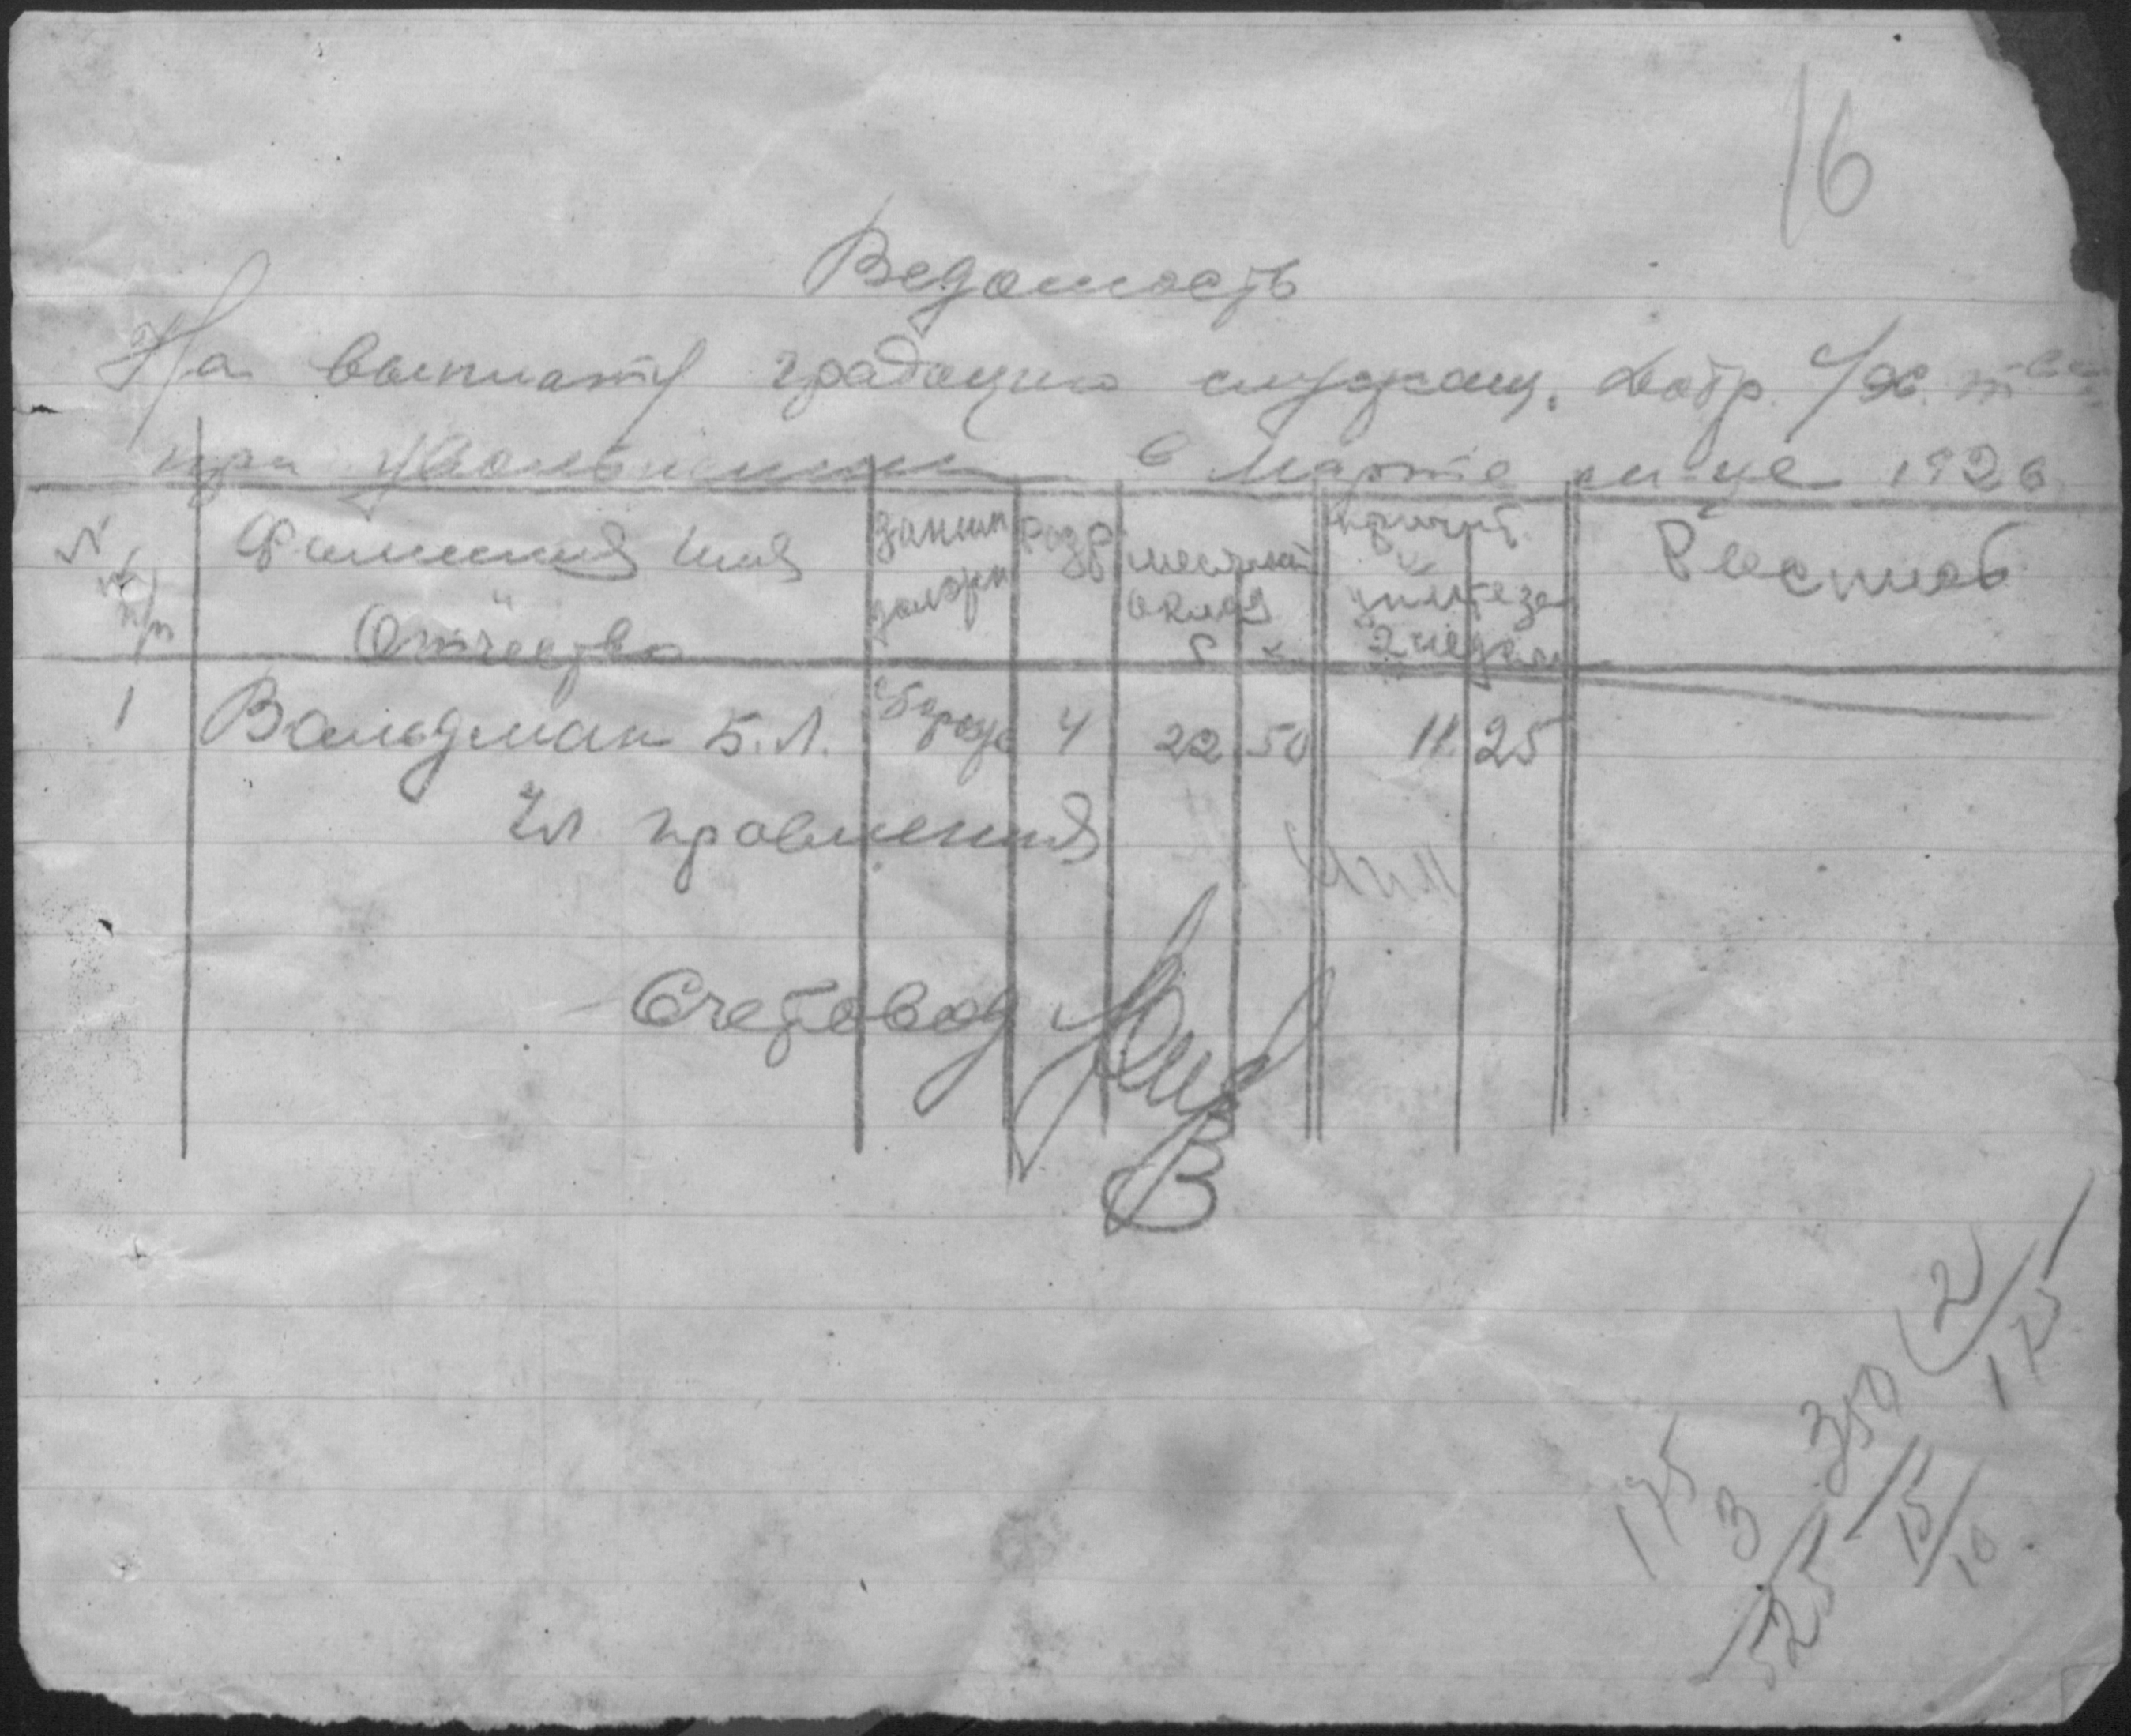 16
Ведомость
На выплату градации служащ. Добр. с/х. т-ва
при увольнении в марте м-це 1926
№ п/п Фамилия Имя Отчество Заним должн Разр месячный оклад р к причит. 2 недели Расписка
1 Вальдман Б.Л. 4 22 50 11 25
Чл правления
Счетовод
350 2
175
15
10
175
3
525